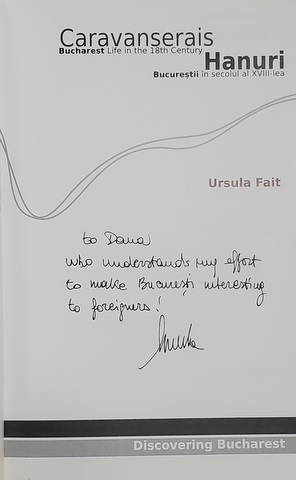 Caravanserais
Bucharest Life in the 18th Century
Hanuri
Bucureștii în secolul al XVIII-lea
Ursula Fait
to Dana
who understands my effort
to make București interesting
to foreigners!
Discovering Bucharest